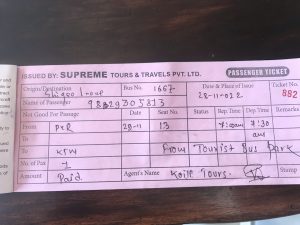 ISSUED BY: SUPREME TOURS & TRAVELS PVT. LTD.
PASSENGER TICKET
Origin/Destination Bus No. 1667 Date & Place of Issue Ticket No.
28-11-022 882
Name of Passenger
Not Good For Passage Date Seat No. Status Rep. Time Dep. Time
From PKR 28-11 13 7:00am 7:30
am
To From Tourist Bus Park
To KTM
No. of Pax 1
Amount Paid. Agent's Name Tours. Stamp